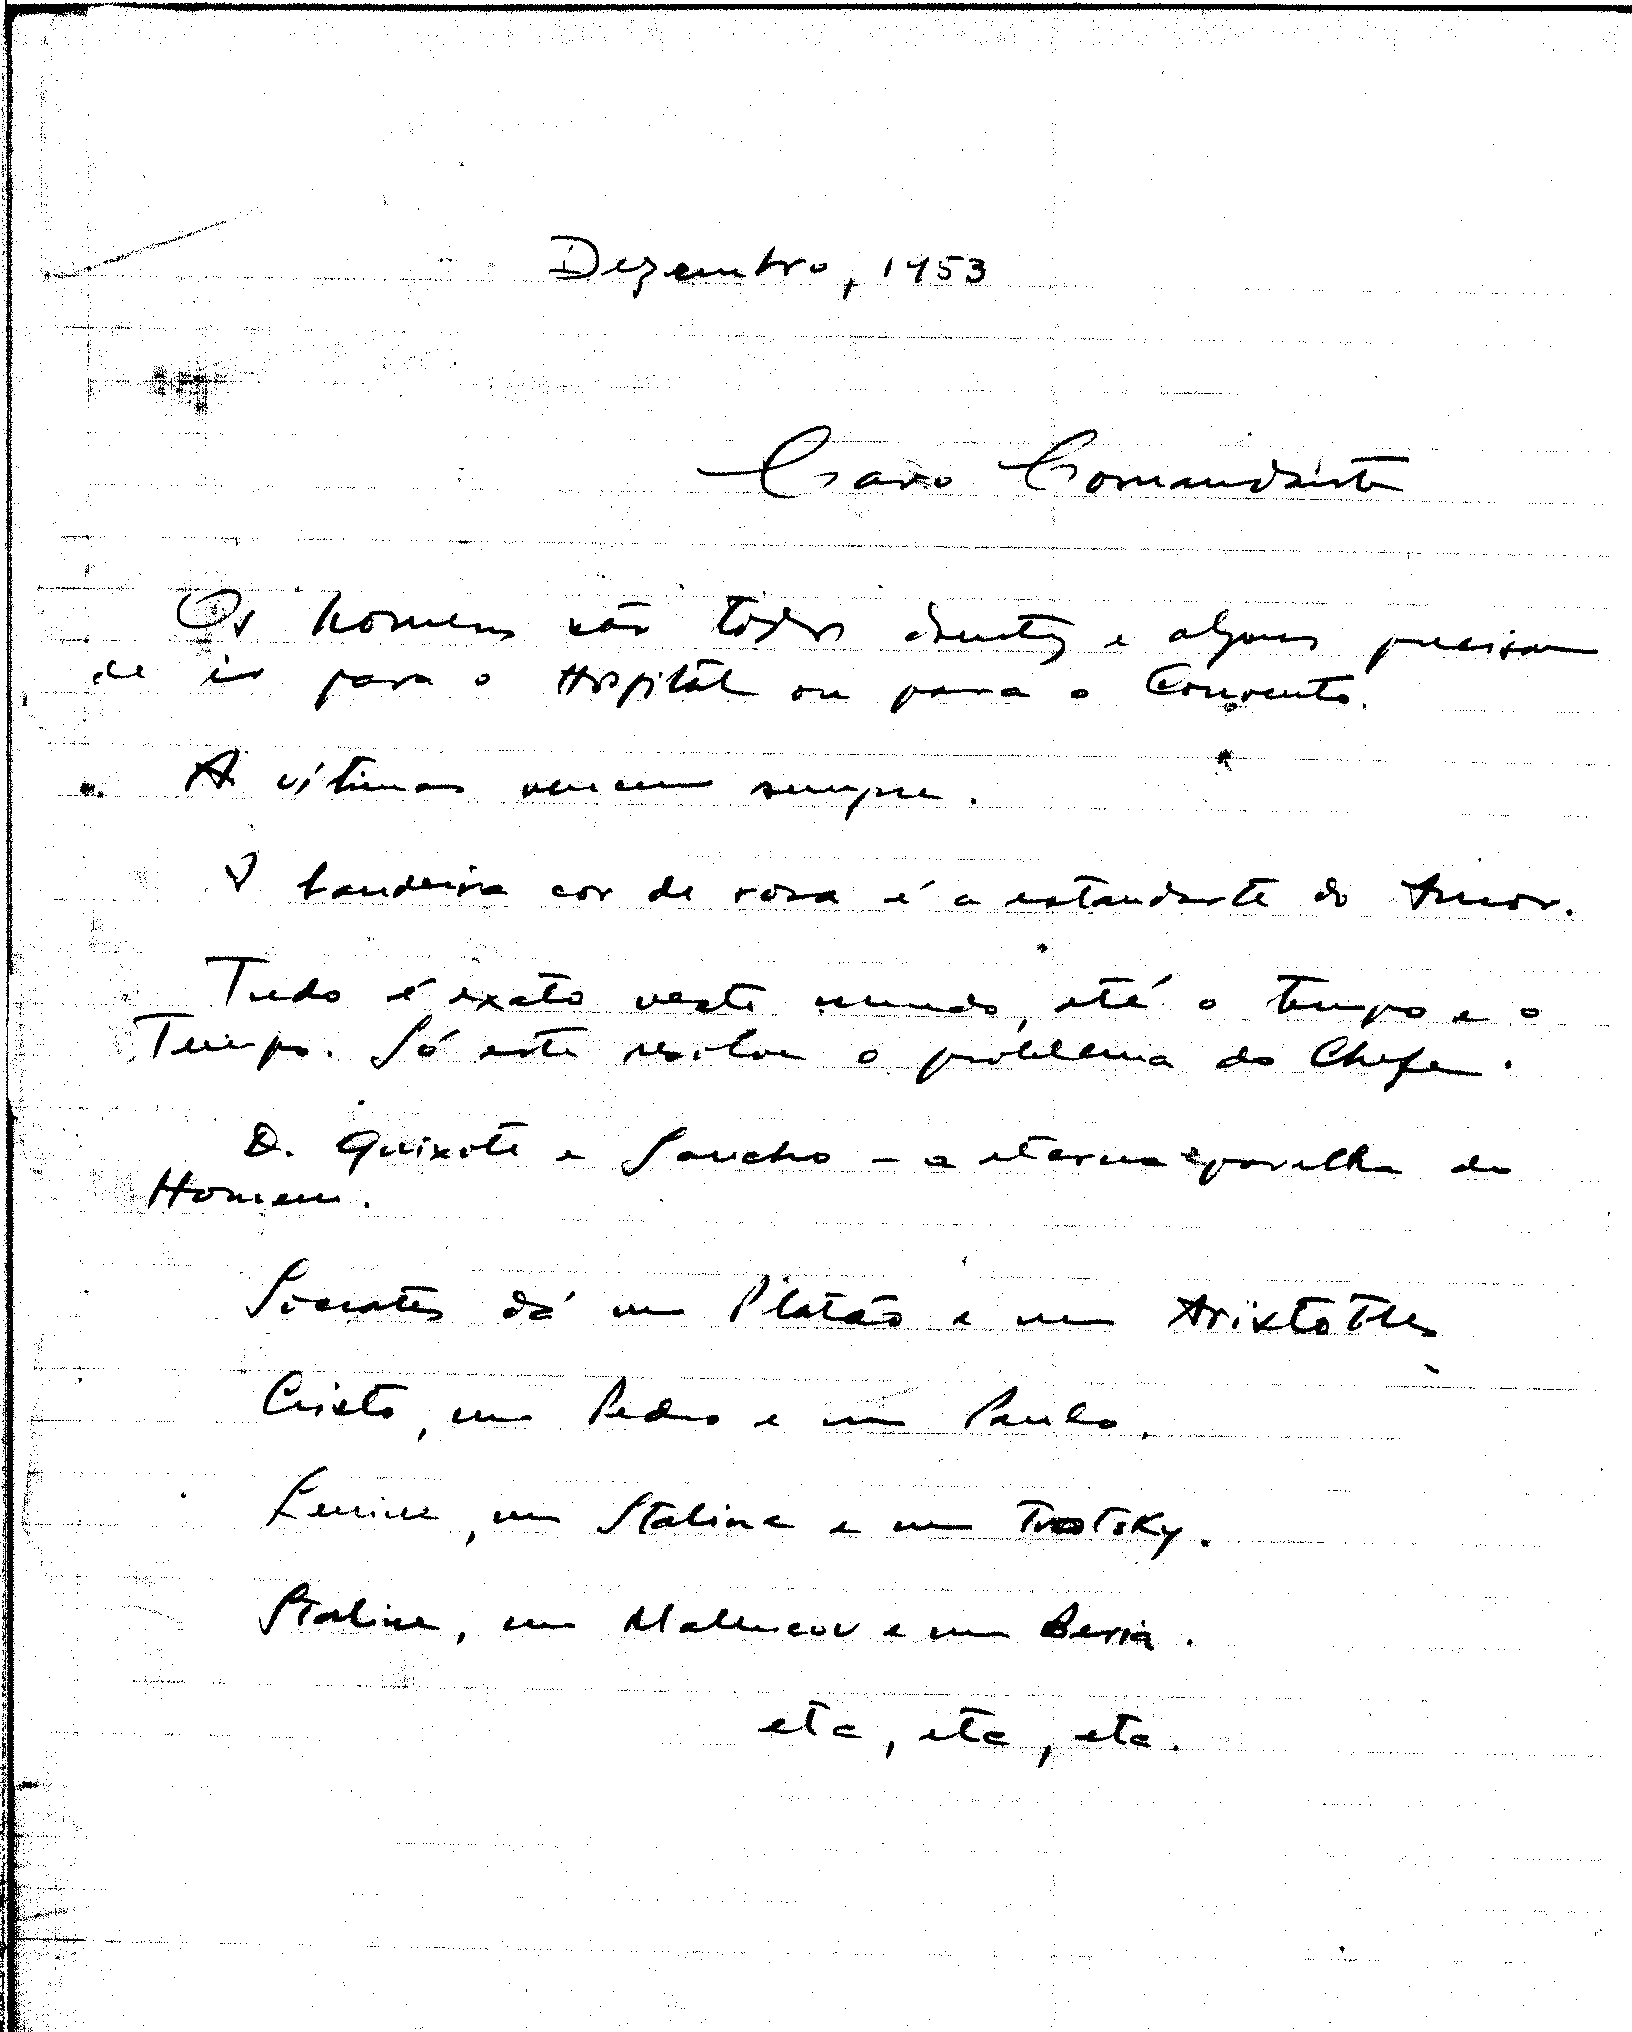 Dezembro, 1953
Caro Comandante
Os homens são todos doentes e alguns precisam
de ir para o Hospital ou para o Convento.
A vítimas vencem sempre.
A bandeira cor de rosa é o estandarte do Amor.
Tudo é exato neste mundo, até o tempo e o
Tempo. Só este resolve o problema do Chefe.
D. Quixote e Sancho - a eterna parelha do
Homem.
Socrates dá um Platão e um Aristoteles
Cristo, um Pedro e um Paulo.
Lenine, um Staline e um Trotsky.
Staline, um Malencov e um Beria.
etc, etc, etc.